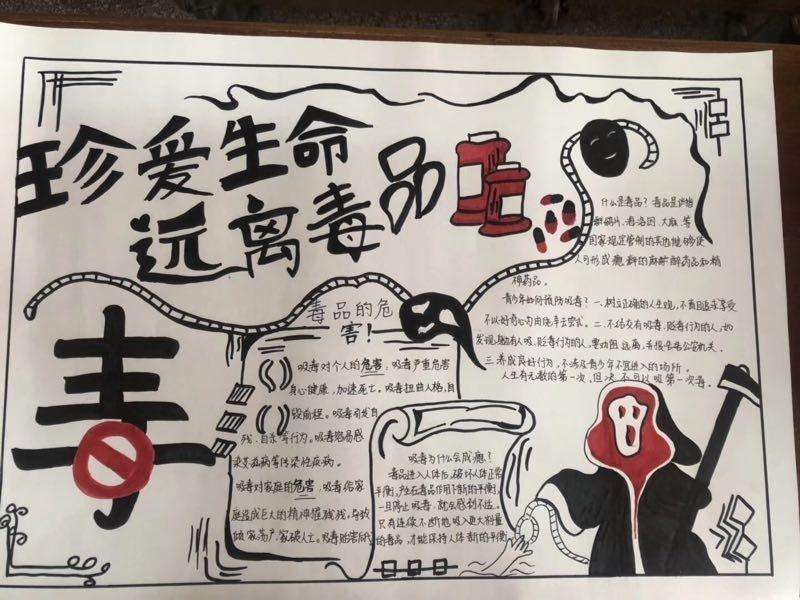 珍爱生命
远离毒品
毒
毒品的危
害!
吸毒对个人的危害:吸毒严重危害
身心健康,加速死亡。吸毒扭曲人格,自
毁前程。吸毒引发自
残、自杀等行为。吸毒容易感
染艾滋病等传染性疾病。
吸毒对家庭的危害:吸毒给家
庭造成巨大的精神摧残,导致
倾家荡产、家破人亡。吸毒贻害后代
吸毒为什么会成瘾?
毒品进入人体后,破坏人体正常
平衡,产生毒品作用下新的平衡,
一旦停止吸毒,就会感到不适。
只有连续不断地吸入更大剂量
的毒品,才能保持人体新的平衡
什么是毒品?毒品是指
鸦片、海洛因、大麻、等
国家规定管制的其他能够使
人形成瘾癖的麻醉药品和精
神药品。
青少年如何预防吸毒?一、树立正确的人生观,不盲目追求享受
不以好奇心为由侥幸去尝试。二、不结交有吸毒、贩毒行为的人,如
发现有人吸、贩毒行为的人,要劝阻、远离,并报告公安机关。
三、养成良好行为,不涉及青少年不宜进入的场所。
人生有无数的第一次,但决不可以吸第一次毒。